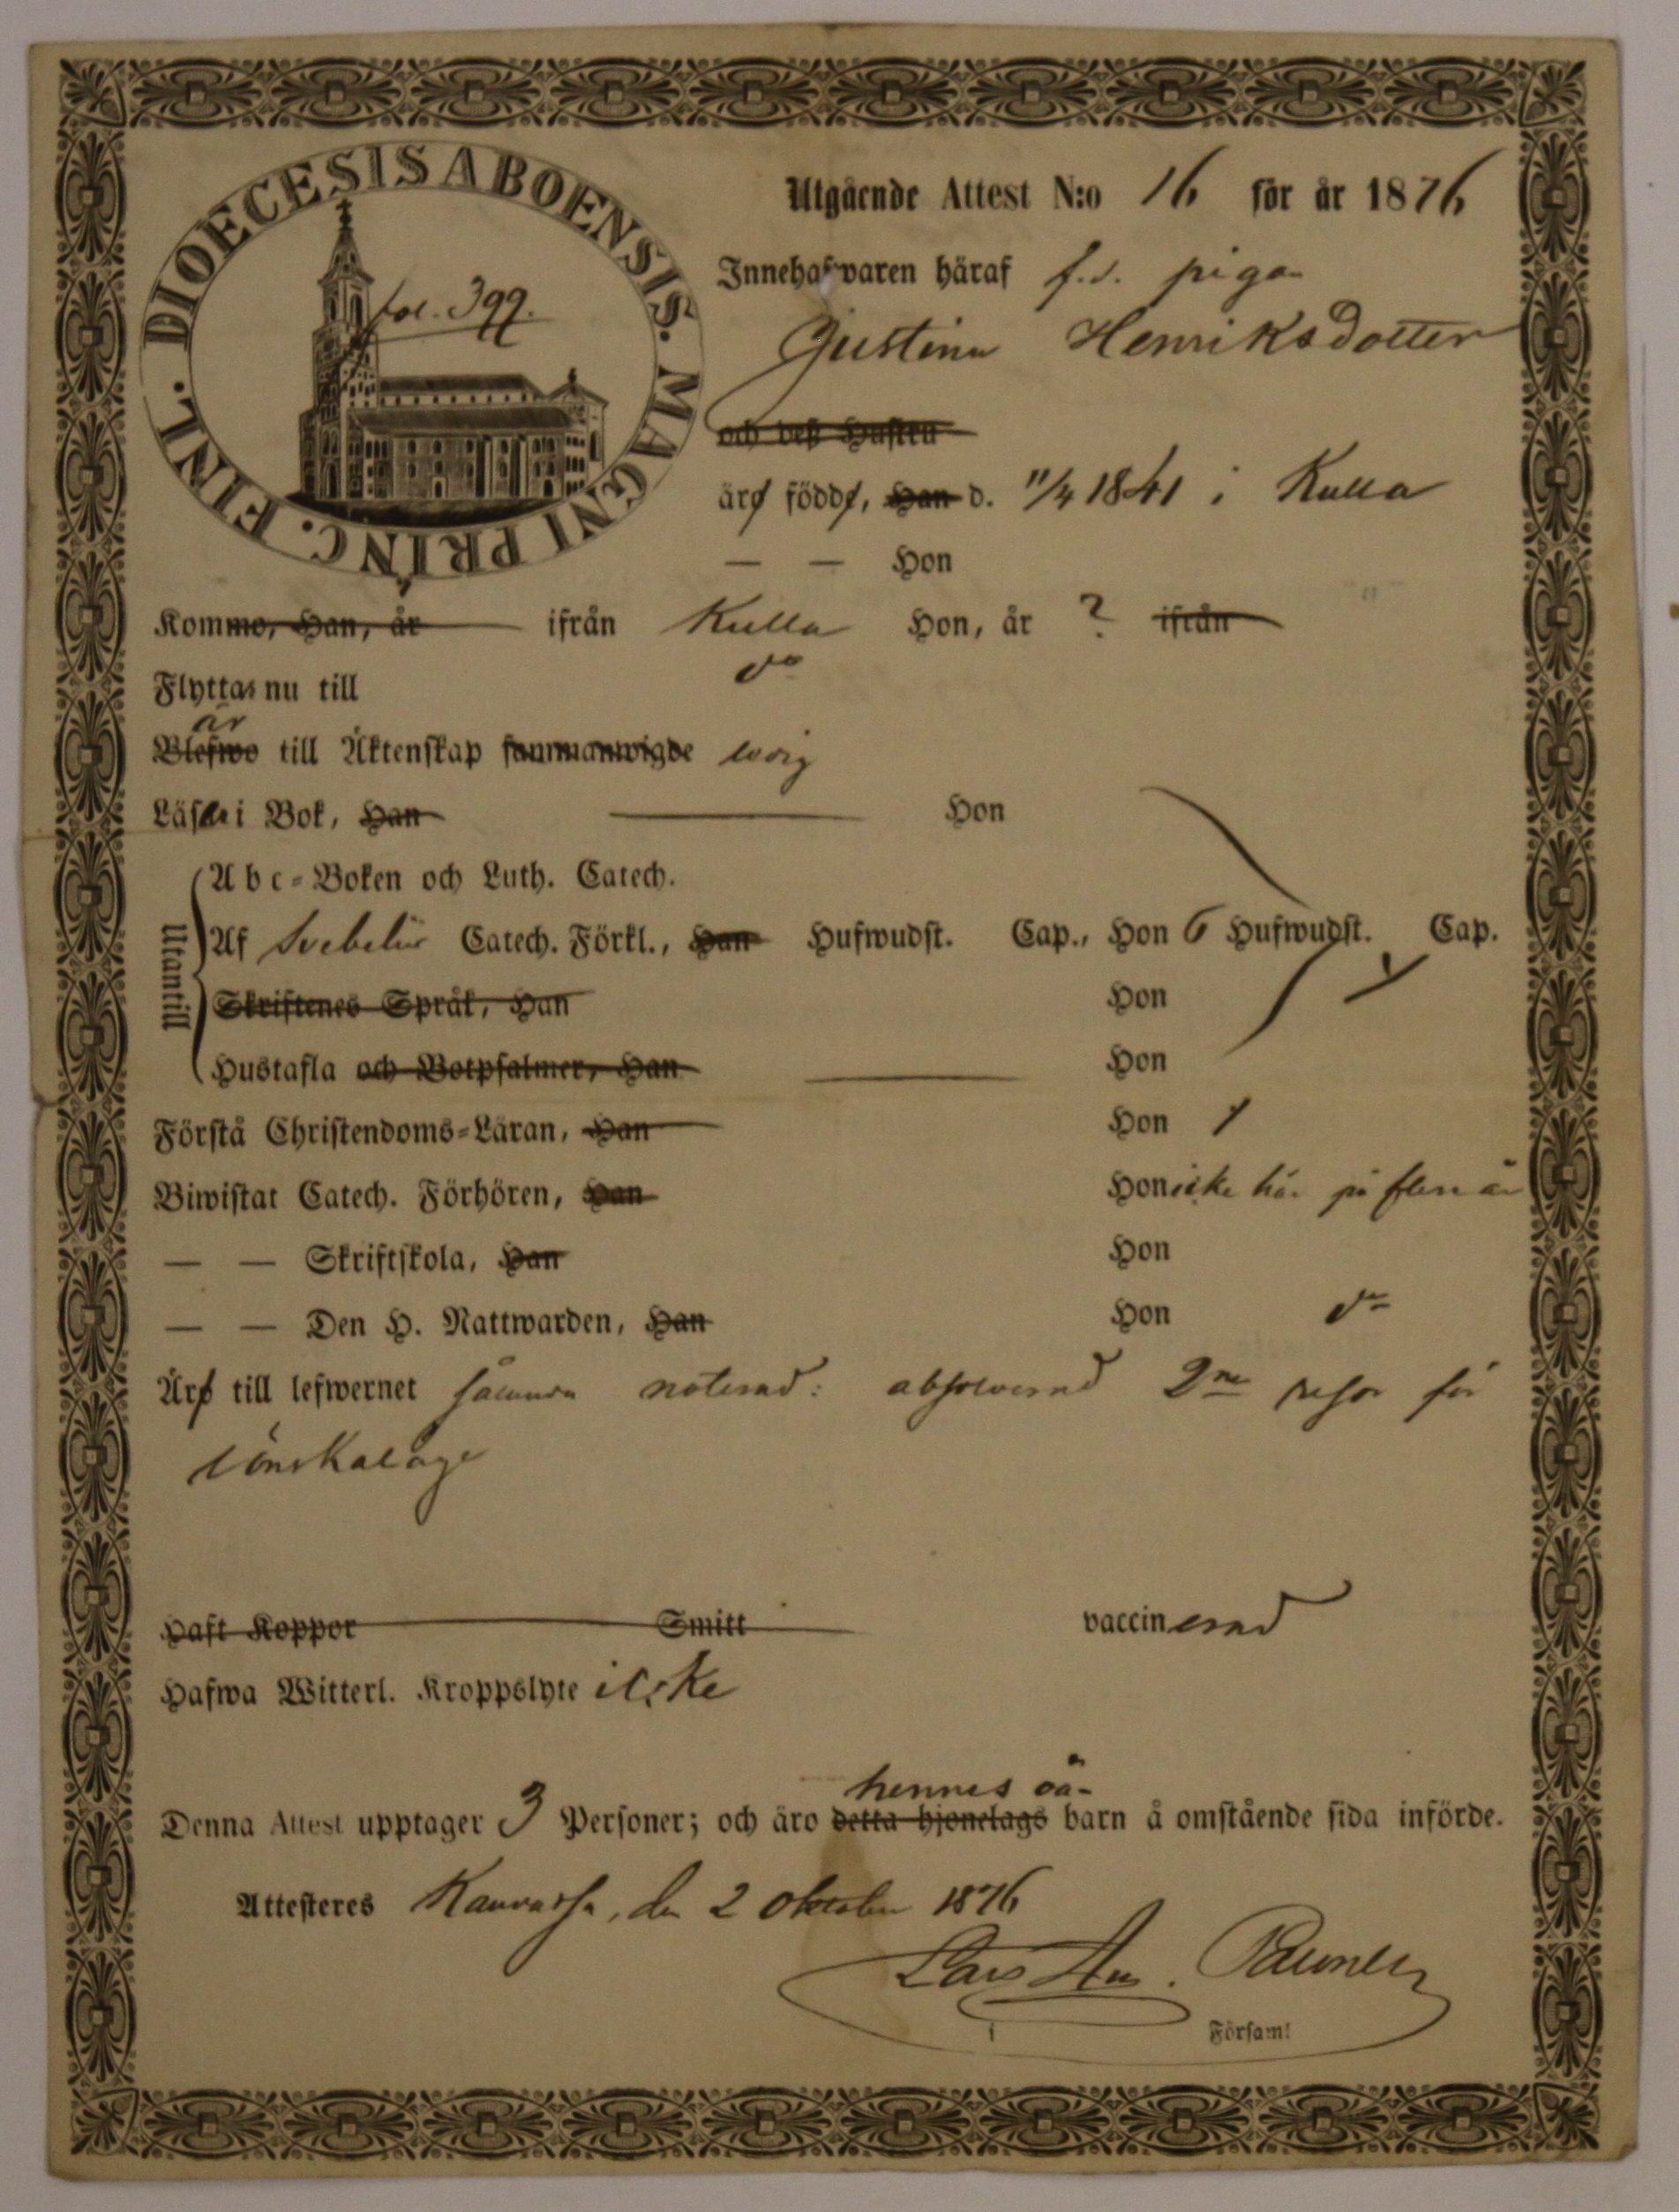 DIOECESIS ABOENSIS. MAGNI PRINC. FINL.
fol. 399.
Utgående Attest N:o 16 för år 1876
Innehafwaren häraf f.d. piga
Gustina Henriksdotter
och deß Hustru
äro födde, Han d. 11/4 1841 i Kulla
— — Hon
Kommo, Han, år ifrån Kulla Hon, år ? ifrån
Flyttas nu till do
är
Blefwo till Äktenskap sammanwigde ledig
Läsa i Bok, Han Hon
Abc-Boken och Luth. Catech.
Utantill
Af Svebelii Catech. Förkl., Han Hufwudst. Cap., Hon 6 Hufwudst. Cap.
Skriftenes Språk, Han Hon
Hustafla och Botpsalmer, Han Hon
Förstå Christendoms-Läran, Han Hon
Biwistat Catech. Förhören, Han Hon icke här på flera år
— — Skriftskola, Han Hon
— — Den H. Nattwarden, Han Hon do
Äro till lefwernet sålunda noterad: absolverad 2ne resor för
lönskaläge
Haft Koppor Smitt vaccinerad
Hafwa Witterl. Kroppslyte icke
hennes oä-
Denna Attest upptager 3 Personer; och äro detta hjonelags barn å omstående sida införde.
Attesteres Kauvatsa, den 2 Oktober 1876
Lars
i Församl